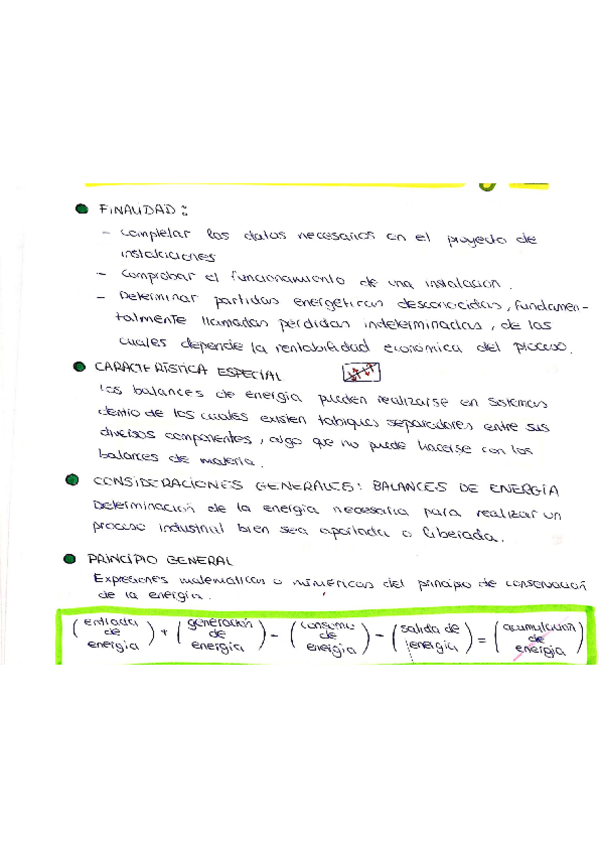 FINALIDAD:
- Completar los datos necesarios en el proyecto de
instalaciones
- Comprobar el funcionamiento de una instalación.
- Determinar partidas energéticas desconocidas, fundamen-
talmente llamadas pérdidas indeterminadas, de las
cuales depende la rentabilidad económica del proceso.
CARACTERÍSTICA ESPECIAL
Los balances de energía pueden realizarse en sistemas
dentro de los cuales existen tabiques separadores entre sus
diversos componentes, algo que no puede hacerse con los
balances de materia.
CONSIDERACIONES GENERALES: BALANCES DE ENERGÍA
Determinación de la energía necesaria para realizar un
proceso industrial bien sea aportada o liberada.
PRINCIPIO GENERAL
Expresiones matemáticas o numéricas del principio de conservación
de la energía.
(entrada de energía) + (generación de energía) - (consumo de energía) - (salida de energía) = (acumulación de energía)